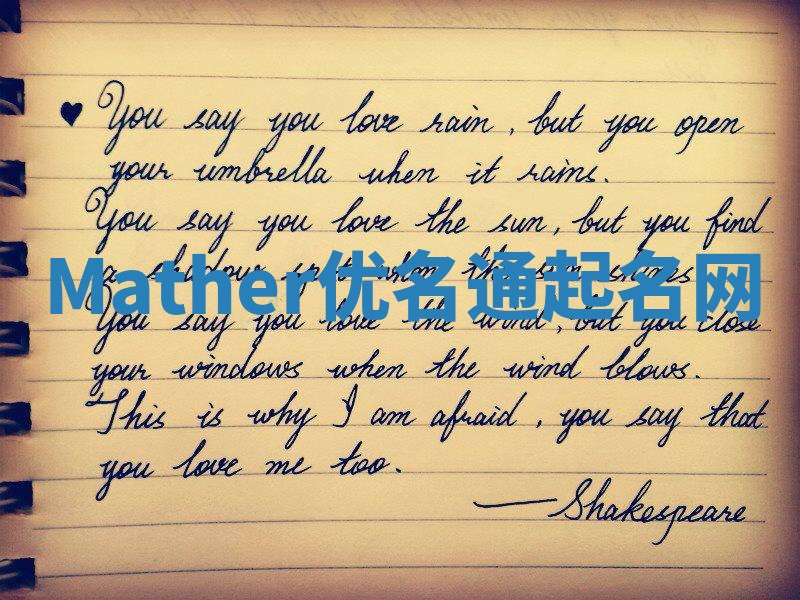 ♥ You say you love rain, but you open
your umbrella when it rains.
You say you love the sun, but you find
a shadow spot when the sun shines
Mather优名通起名网
You say you love the wind, but you close
your windows when the wind blows.
This is why I am afraid, you say that
you love me too.
—Shakespeare